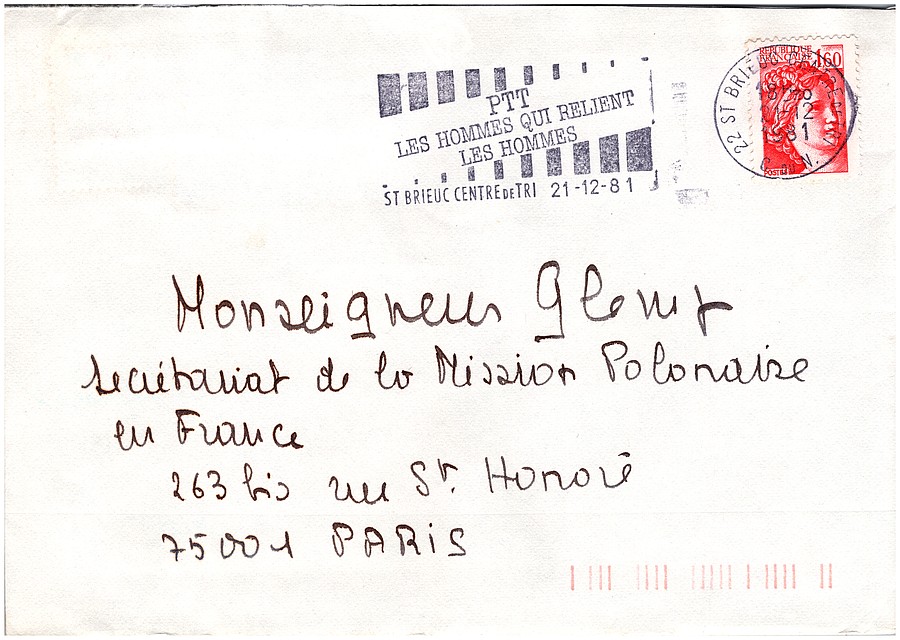 PTT
LES HOMMES QUI RELIENT
LES HOMMES
ST BRIEUC CENTRE DE TRI 21-12-81
RÉPUBLIQUE
FRANÇAISE 1,60
POSTES
22 ST BRIEUC
18H
21-12
1981
C. DU N.
Monseigneur Glemp
secrétariat de la Mission Polonaise
en France
263 bis rue St. Honoré
75001 PARiS